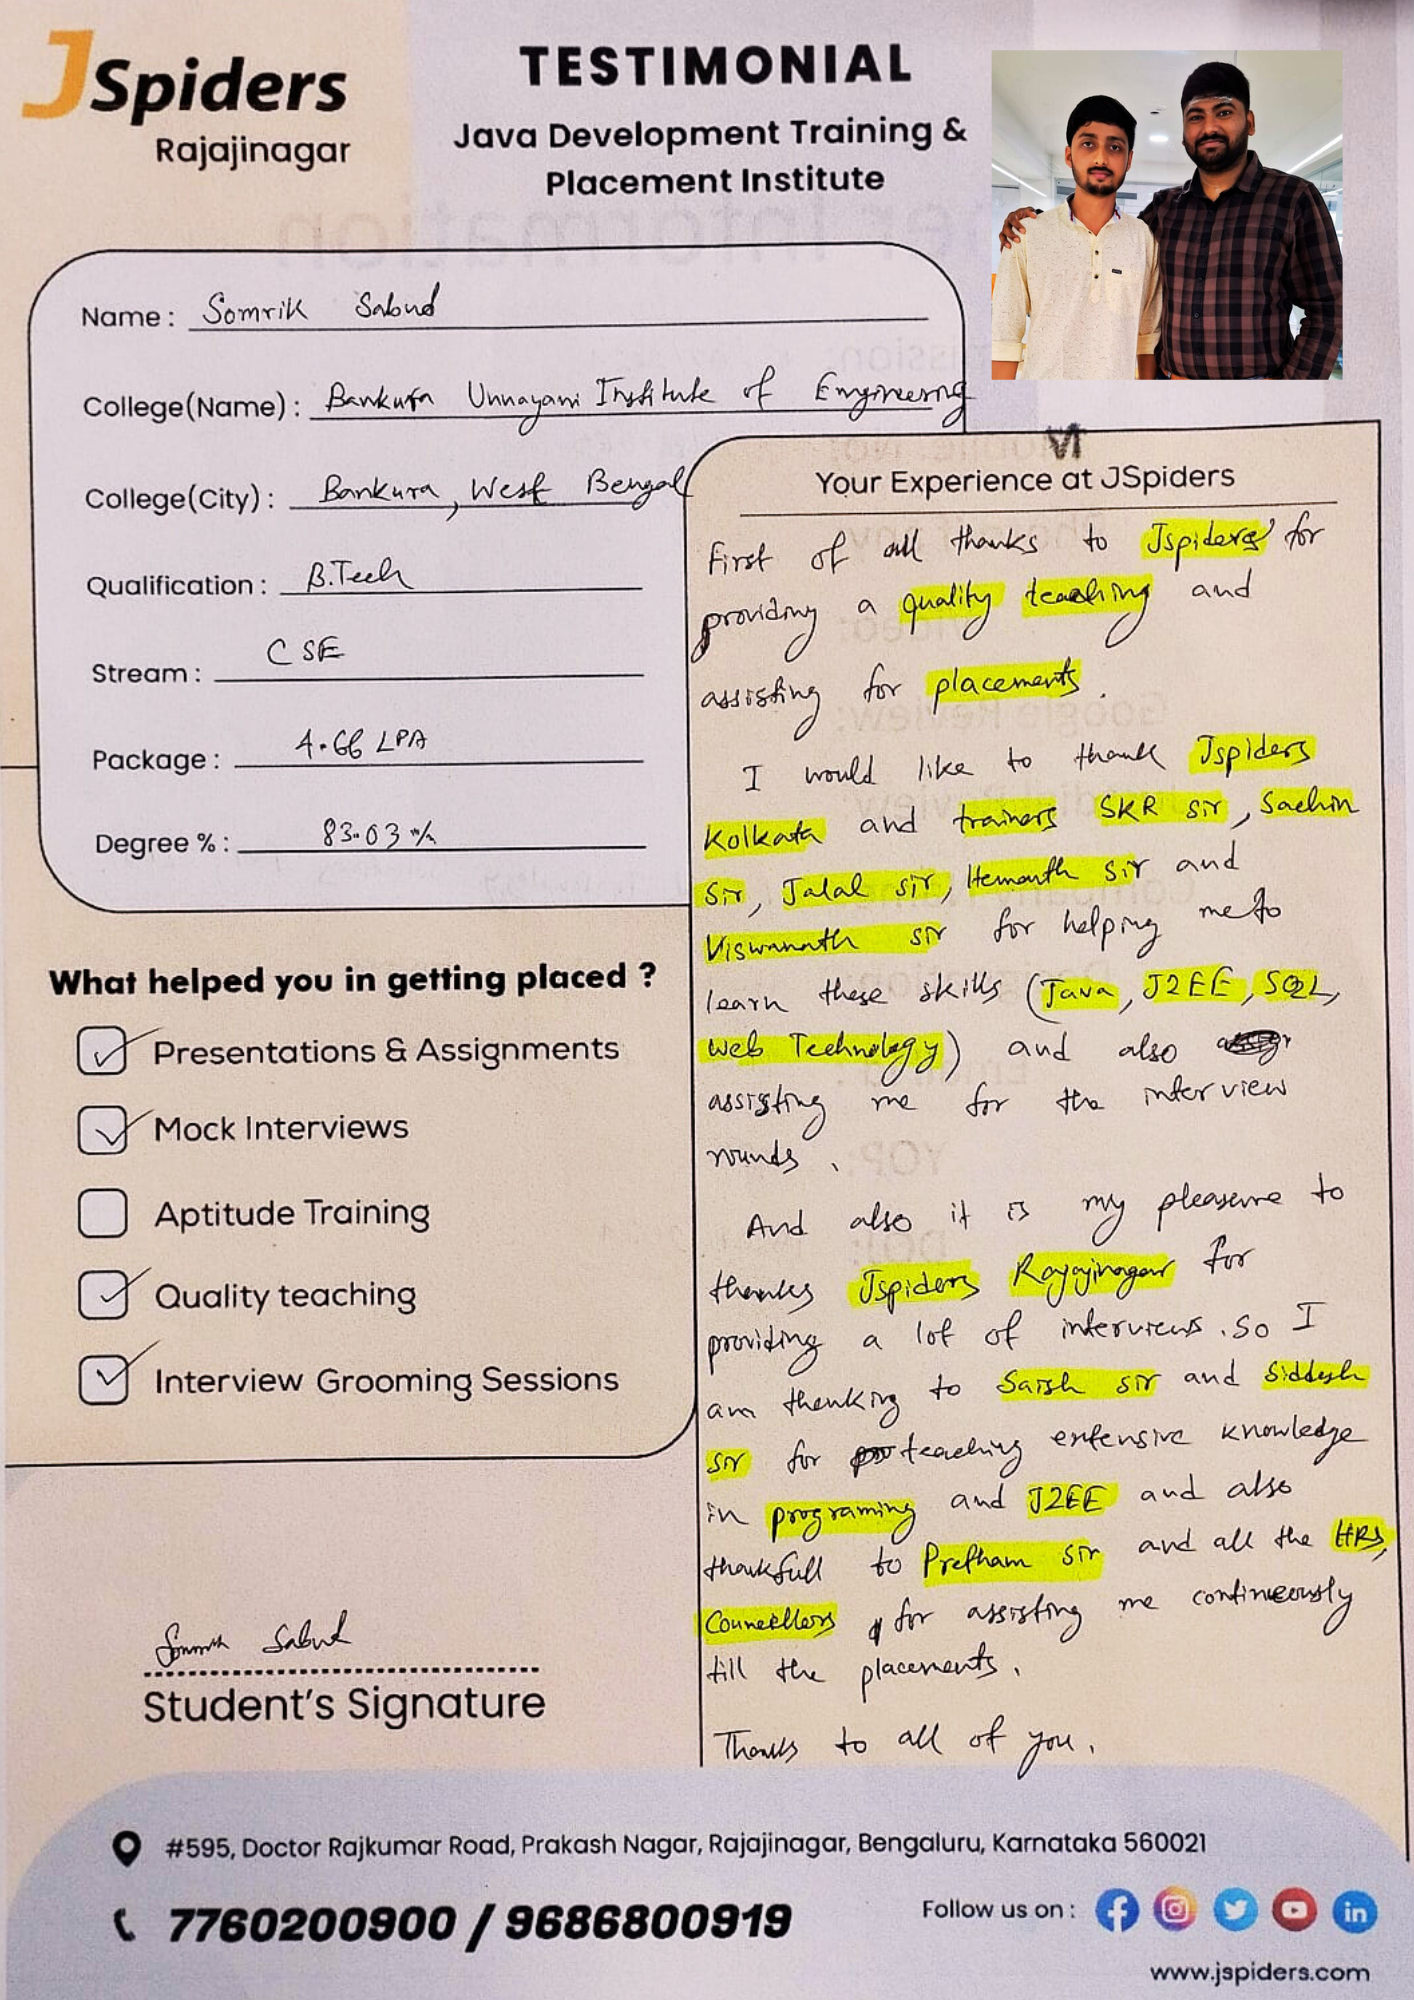 JSpiders
Rajajinagar
TESTIMONIAL
Java Development Training &
Placement Institute
Name : Somrik Sabud
College(Name) : Bankura Unnayani Institute of Engineering
College(City) : Bankura, West Bengal
Qualification : B.Tech
Stream : CSE
Package : 4.66 LPA
Degree % : 83.03 %
What helped you in getting placed ?
Presentations & Assignments
Mock Interviews
Aptitude Training
Quality teaching
Interview Grooming Sessions
Somrik Sabud
Student's Signature
Your Experience at JSpiders
First of all thanks to Jspiders for
providing a quality teaching and
assisting for placements.
I would like to thank Jspiders
Kolkata and trainers SKR sir, Sachin
Sir, Jalal sir, Hemanth sir and
Viswanath sir for helping me to
learn these skills (Java, J2EE, SQL,
Web Technology) and also
assisting me for the interview
rounds.
And also it is my pleasure to
thanks Jspiders Rajajinagar for
providing a lot of interviews. So I
am thanking to Saish sir and Siddesh
sir for teaching extensive knowledge
in programing and J2EE and also
thankfull to Pretham sir and all the HRs,
Councellors for assisting me continuously
till the placements.
Thanks to all of you.
#595, Doctor Rajkumar Road, Prakash Nagar, Rajajinagar, Bengaluru, Karnataka 560021
7760200900 / 9686800919
Follow us on :
www.jspiders.com